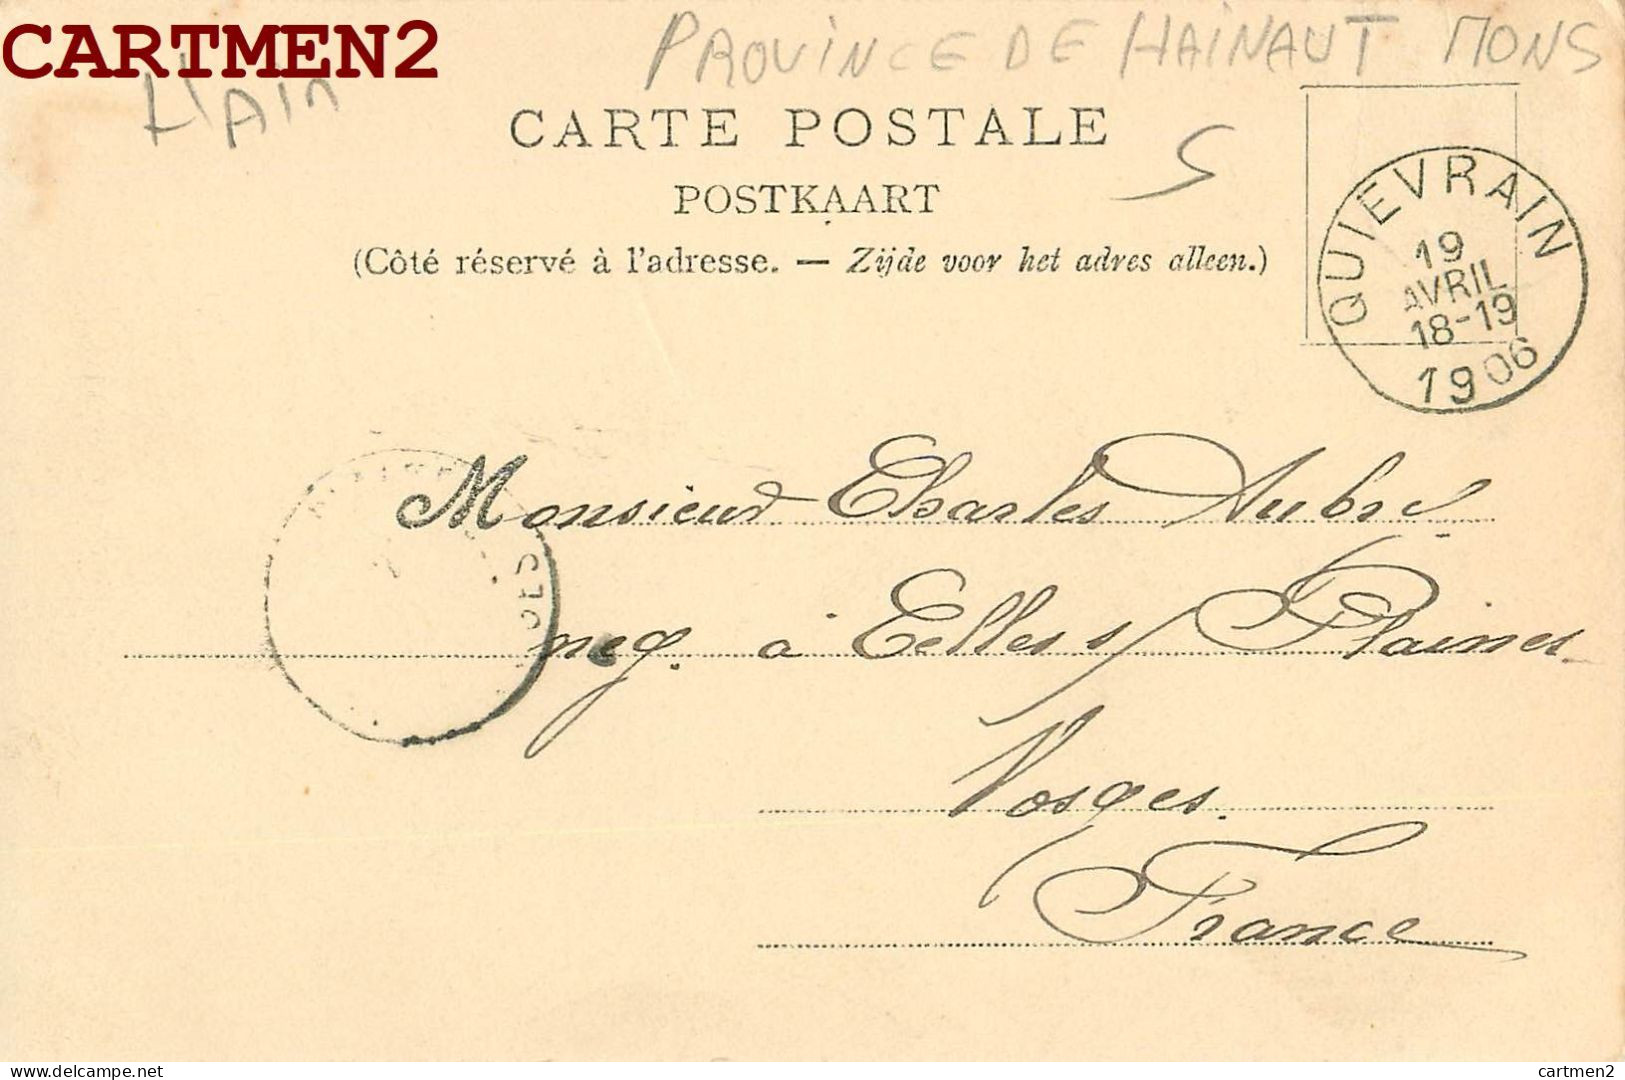 CARTMEN2
PROVINCE DE HAINAUT MONS
L'AIN
CARTE POSTALE
5
POSTKAART
(Côté réservé à l'adresse. — Zijde voor het adres alleen.)
QUIEVRAIN
19
AVRIL
18-19
1906
Monsieur Charles Aubry
neg. à Celles s/ Plaines
Vosges.
France
Delcampe.net
cartmen2